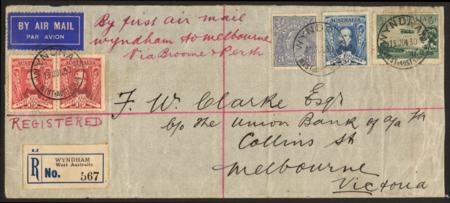 BY AIR MAIL
PAR AVION
By first air mail
Wyndham to Melbourne
Via Broome & Perth
AUSTRALIA
AUSTRALIA
WYNDHAM
REGISTERED
F. W. Clarke Esqr
c/o the Union Bank of a/a Ltd
Collins St
Melbourne
Victoria
R
WYNDHAM
West Australia
No. 567